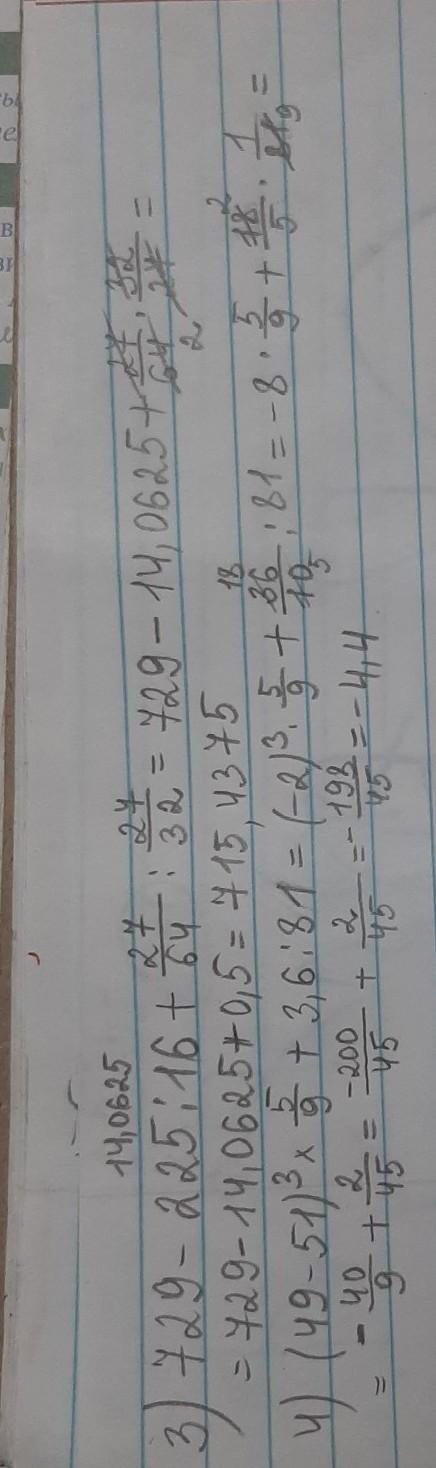 14,0625
3) 729 - 225 : 16 + 27/64 : 27/32 = 729 - 14,0625 + 27/64 · 32/27 =
2
= 729 - 14,0625 + 0,5 = 715,4375
18 2
4) (49 - 51)³ × 5/9 + 3,6 : 81 = (-2)³ · 5/9 + 36/10 : 81 = -8 · 5/9 + 18/5 · 1/81 =
5 9
= - 40/9 + 2/45 = -200/45 + 2/45 = -198/45 = -4,4